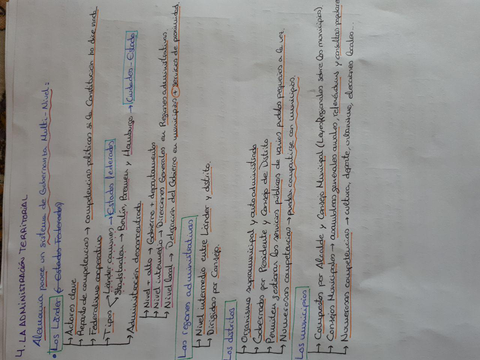 4. LA ADMINISTRACIÓN TERRITORIAL
Alemania posee un sistema de Gobernanza Multi-Nivel:
• Los Länder (= Estados Federados)
→ Actores clave
→ Reparto de competencias → competencias políticas si la Constitución no dice nada
→ Federalismo cooperativo
→ Tipos → Länder comunes → Estados federados
→ Stadtstaaten → Berlín, Bremen y Hamburgo → Ciudades-Estado
→ Administración descentralizada
→ Nivel alto → Gobierno + departamentos
→ Nivel intermedio → Direcciones Generales en Regiones administrativas
→ Nivel local → Delegación del Gobierno en municipios + servicios de proximidad
Las regiones administrativas
→ Nivel intermedio entre Länder y distrito
→ Dirigidas por Consejo
Los distritos
→ Organismo supramunicipal y autoadministrado
→ Gobernados por Presidente y Consejo de Distrito
→ Permiten gestionar los servicios públicos de varios pueblos pequeños a la vez
→ Numerosas competencias → pueden compartirse con municipios
Los municipios
→ Compuestos por Alcalde y Consejo Municipal (Leyes Regionales sobre los municipios)
→ Consejos Municipales → asambleas generales anuales, referéndums y consultas populares
→ Numerosas competencias → cultura, deporte, urbanismo, elecciones locales